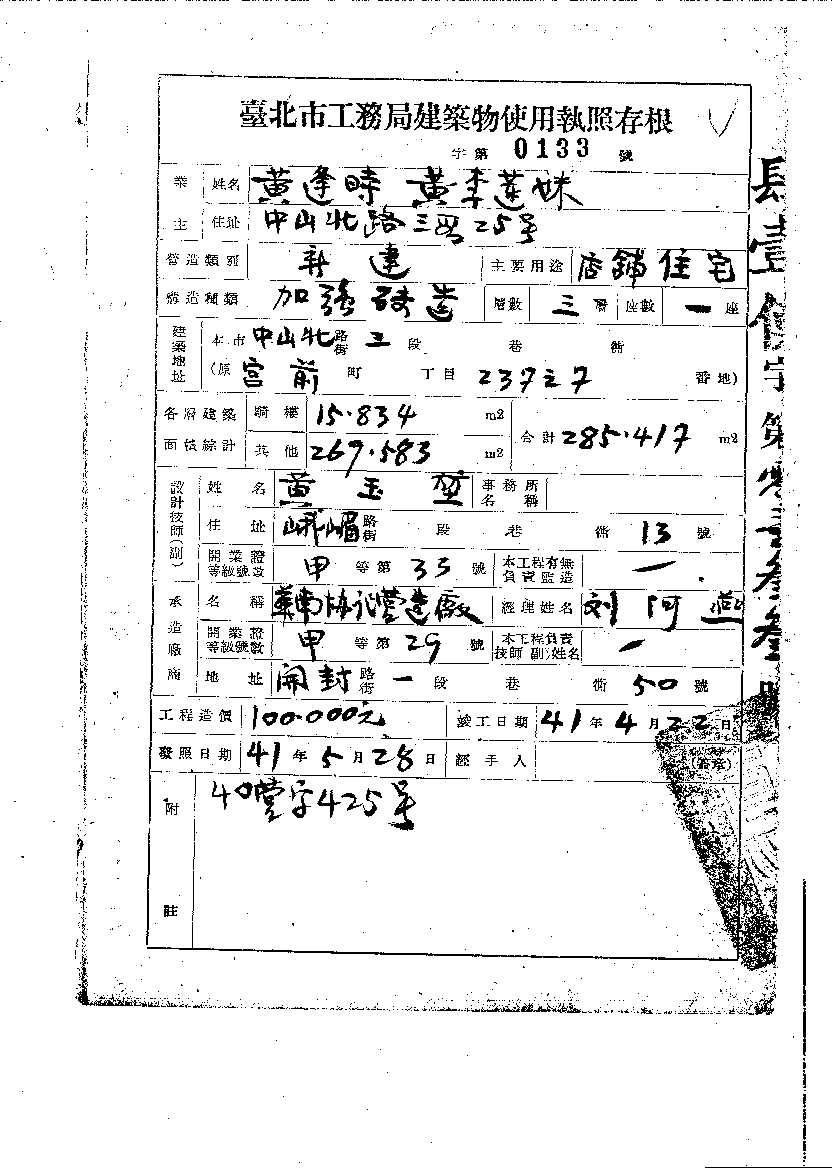 臺北市工務局建築物使用執照存根
字第 0133 號
業主 姓名 黃逢時 黃李蓮妹
住址 中山北路三段25号
營造類別 新建 主要用途 店鋪住宅
構造種類 加強磚造 層數 三層 座數 一座
建築地址 本市中山北路街三段 巷 衖
(原宮前町 丁目 237之7 番地)
各層建築面積綜計 騎樓 15.834 m2
其他 269.583 m2 合計 285.417 m2
設計技師(副) 姓名 黃玉堃 事務所名稱
住址 峨嵋路街 段 巷 衖 13 號
開業證等級號数 甲等第 35 號 本工程有無負責監造 一
承造廠商 名稱 華南協記營造廠 經理姓名 刘阿燕
開業證等級號數 甲等第 29 號 本工程負責技師(副)姓名 一
地址 開封路街一段 巷 衖 50 號
工程造價 100.000元 竣工日期 41年4月22日
發照日期 41年5月28日 經手人 (簽章)
附註 40營字425号